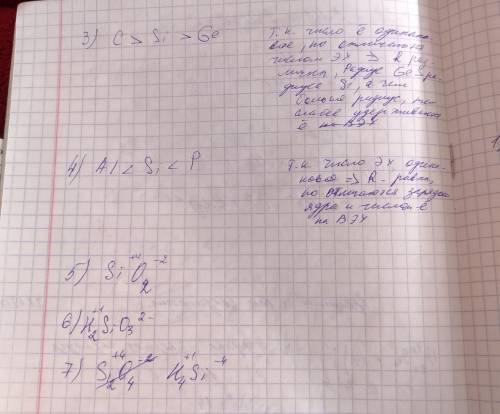 3) C > Si > Ge
Т.к. число ē одинако-
вое, но отличаются
числом ЭУ => R раз-
личны, Радиус Ge > ра-
диуса Si, а чем
больше радиус, тем
слабее удерживаются
ē на ВЭУ
4) Al < Si < P
Т.к. число ЭУ одина-
ковое => R - равны,
но отличаются зарядом
ядра и числом ē
на ВЭУ
5) Si⁺⁴O₂⁻²
6) H₂⁺¹SiO₃²⁻
7) S₂⁺⁴O₄⁻² H₄⁺¹Si⁻⁴
1)